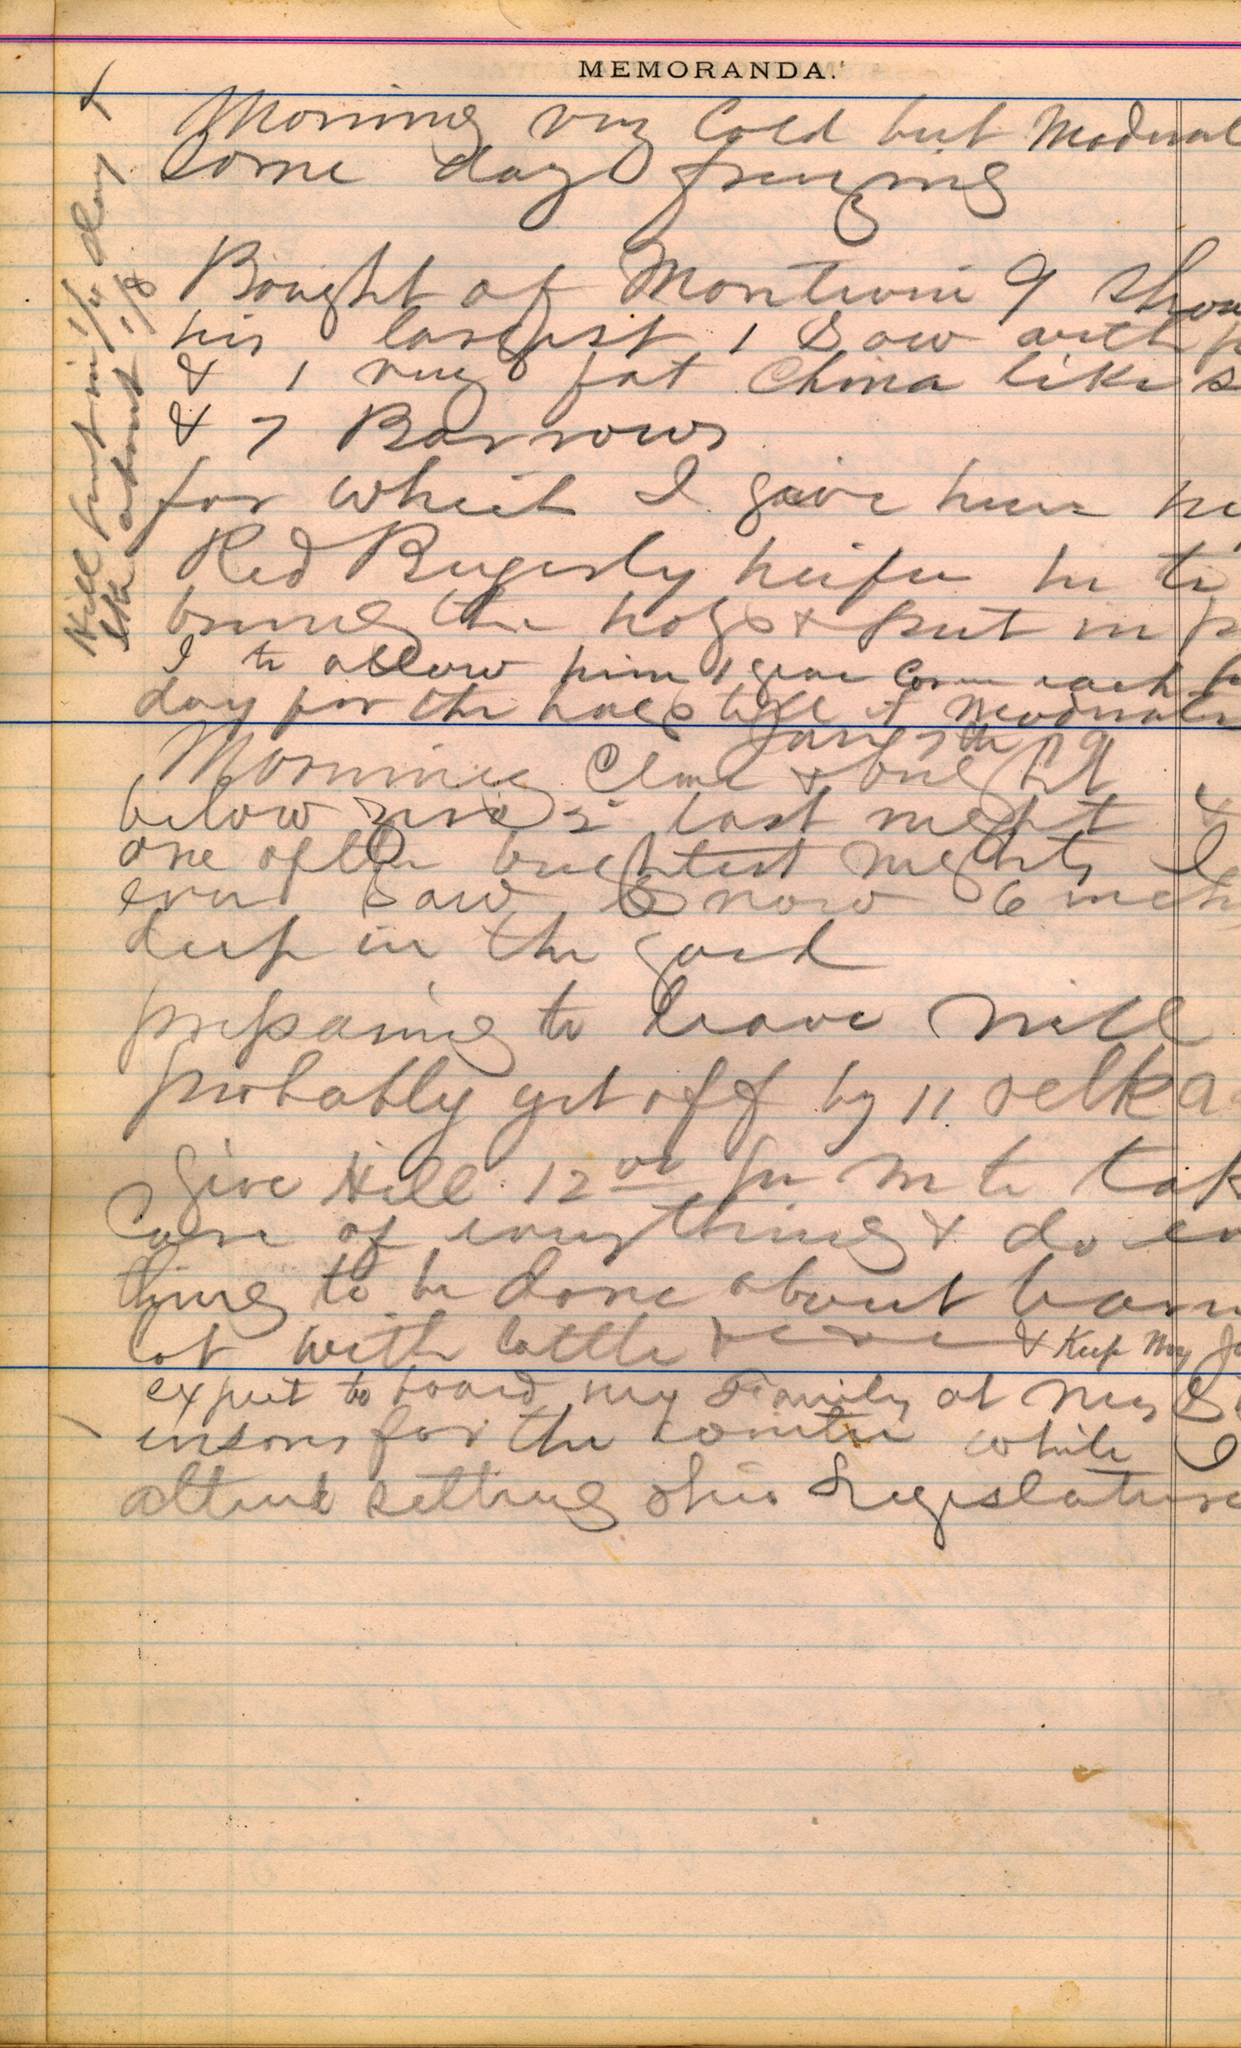 MEMORANDA.
Morning very Cold but Moderat
some day freezing
Bought of Montwin 9 Shou
his largest 1 Sow with p
& 1 very fat China like s
& 7 Barrows
for which I gave him my
Red heifer he to
bring the hogs & put in p
I to allow him 1 Corn each
day for the hogs till it Moderates
Jany 7th 79
Morning Clear & bright &
below zero 2 last night
one of the brightest nights I
ever saw Snow 6 inch
deep in the
preparing to leave will
probably get off by 11 oclk a
Give Hill 12 00 per m to tak
Care of everything & do ev
thing to be done about barn
lot with Cattle & Keep My
expect to board my Family at
for the winter while I
attend setting Ohio Legislature
Hill put in 1/2 day +
about 1/8